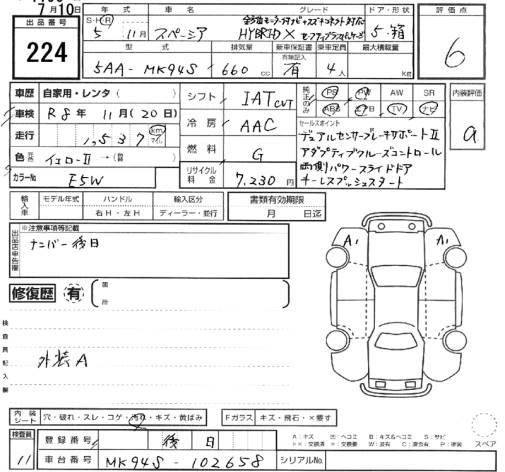 7月10日
出品番号
224
年式 車名 グレード ドア・形状 評価点
S・H・R 5 11月 スペーシア HYBRID X 5・箱 6
型式 排気量 新車保証書 乗車定員 最大積載量
有無記入
5AA-MK94S 660 cc 有 4人 kg
車歴 自家用・レンタ( )
車検 R8年 11月(20日)
走行 1,537 km マイル
色 イエローⅡ →( )
カラーNo. E5W
シフト IAT CVT
冷房 AAC
燃料 G
リサイクル料金 7,230円
純正のみ PS PW AW SR
ABS TV ナビ
内装評価 a
セールスポイント
デュアルセンサーブレーキサポートⅡ
アダプティブクルーズコントロール
両側パワースライドドア
キーレスプッシュスタート
輸入車 モデル年式 ハンドル 輸入区分
右H・左H ディーラー・並行
書類有効期限
月 日迄
※注意事項等記載
ナンバー後日
修復歴 有 箇所
A1 A1
検査員記入欄
外装A
内装シート 穴・破れ・スレ・コゲ・汚れ・キズ・黄ばみ
Fガラス キズ・飛石・×要す
A:キズ U:ヘコミ B:キズ&ヘコミ S:サビ
スペア
検査員 11
登録番号 後日
車台番号 MK94S-102658
シリアルNo.